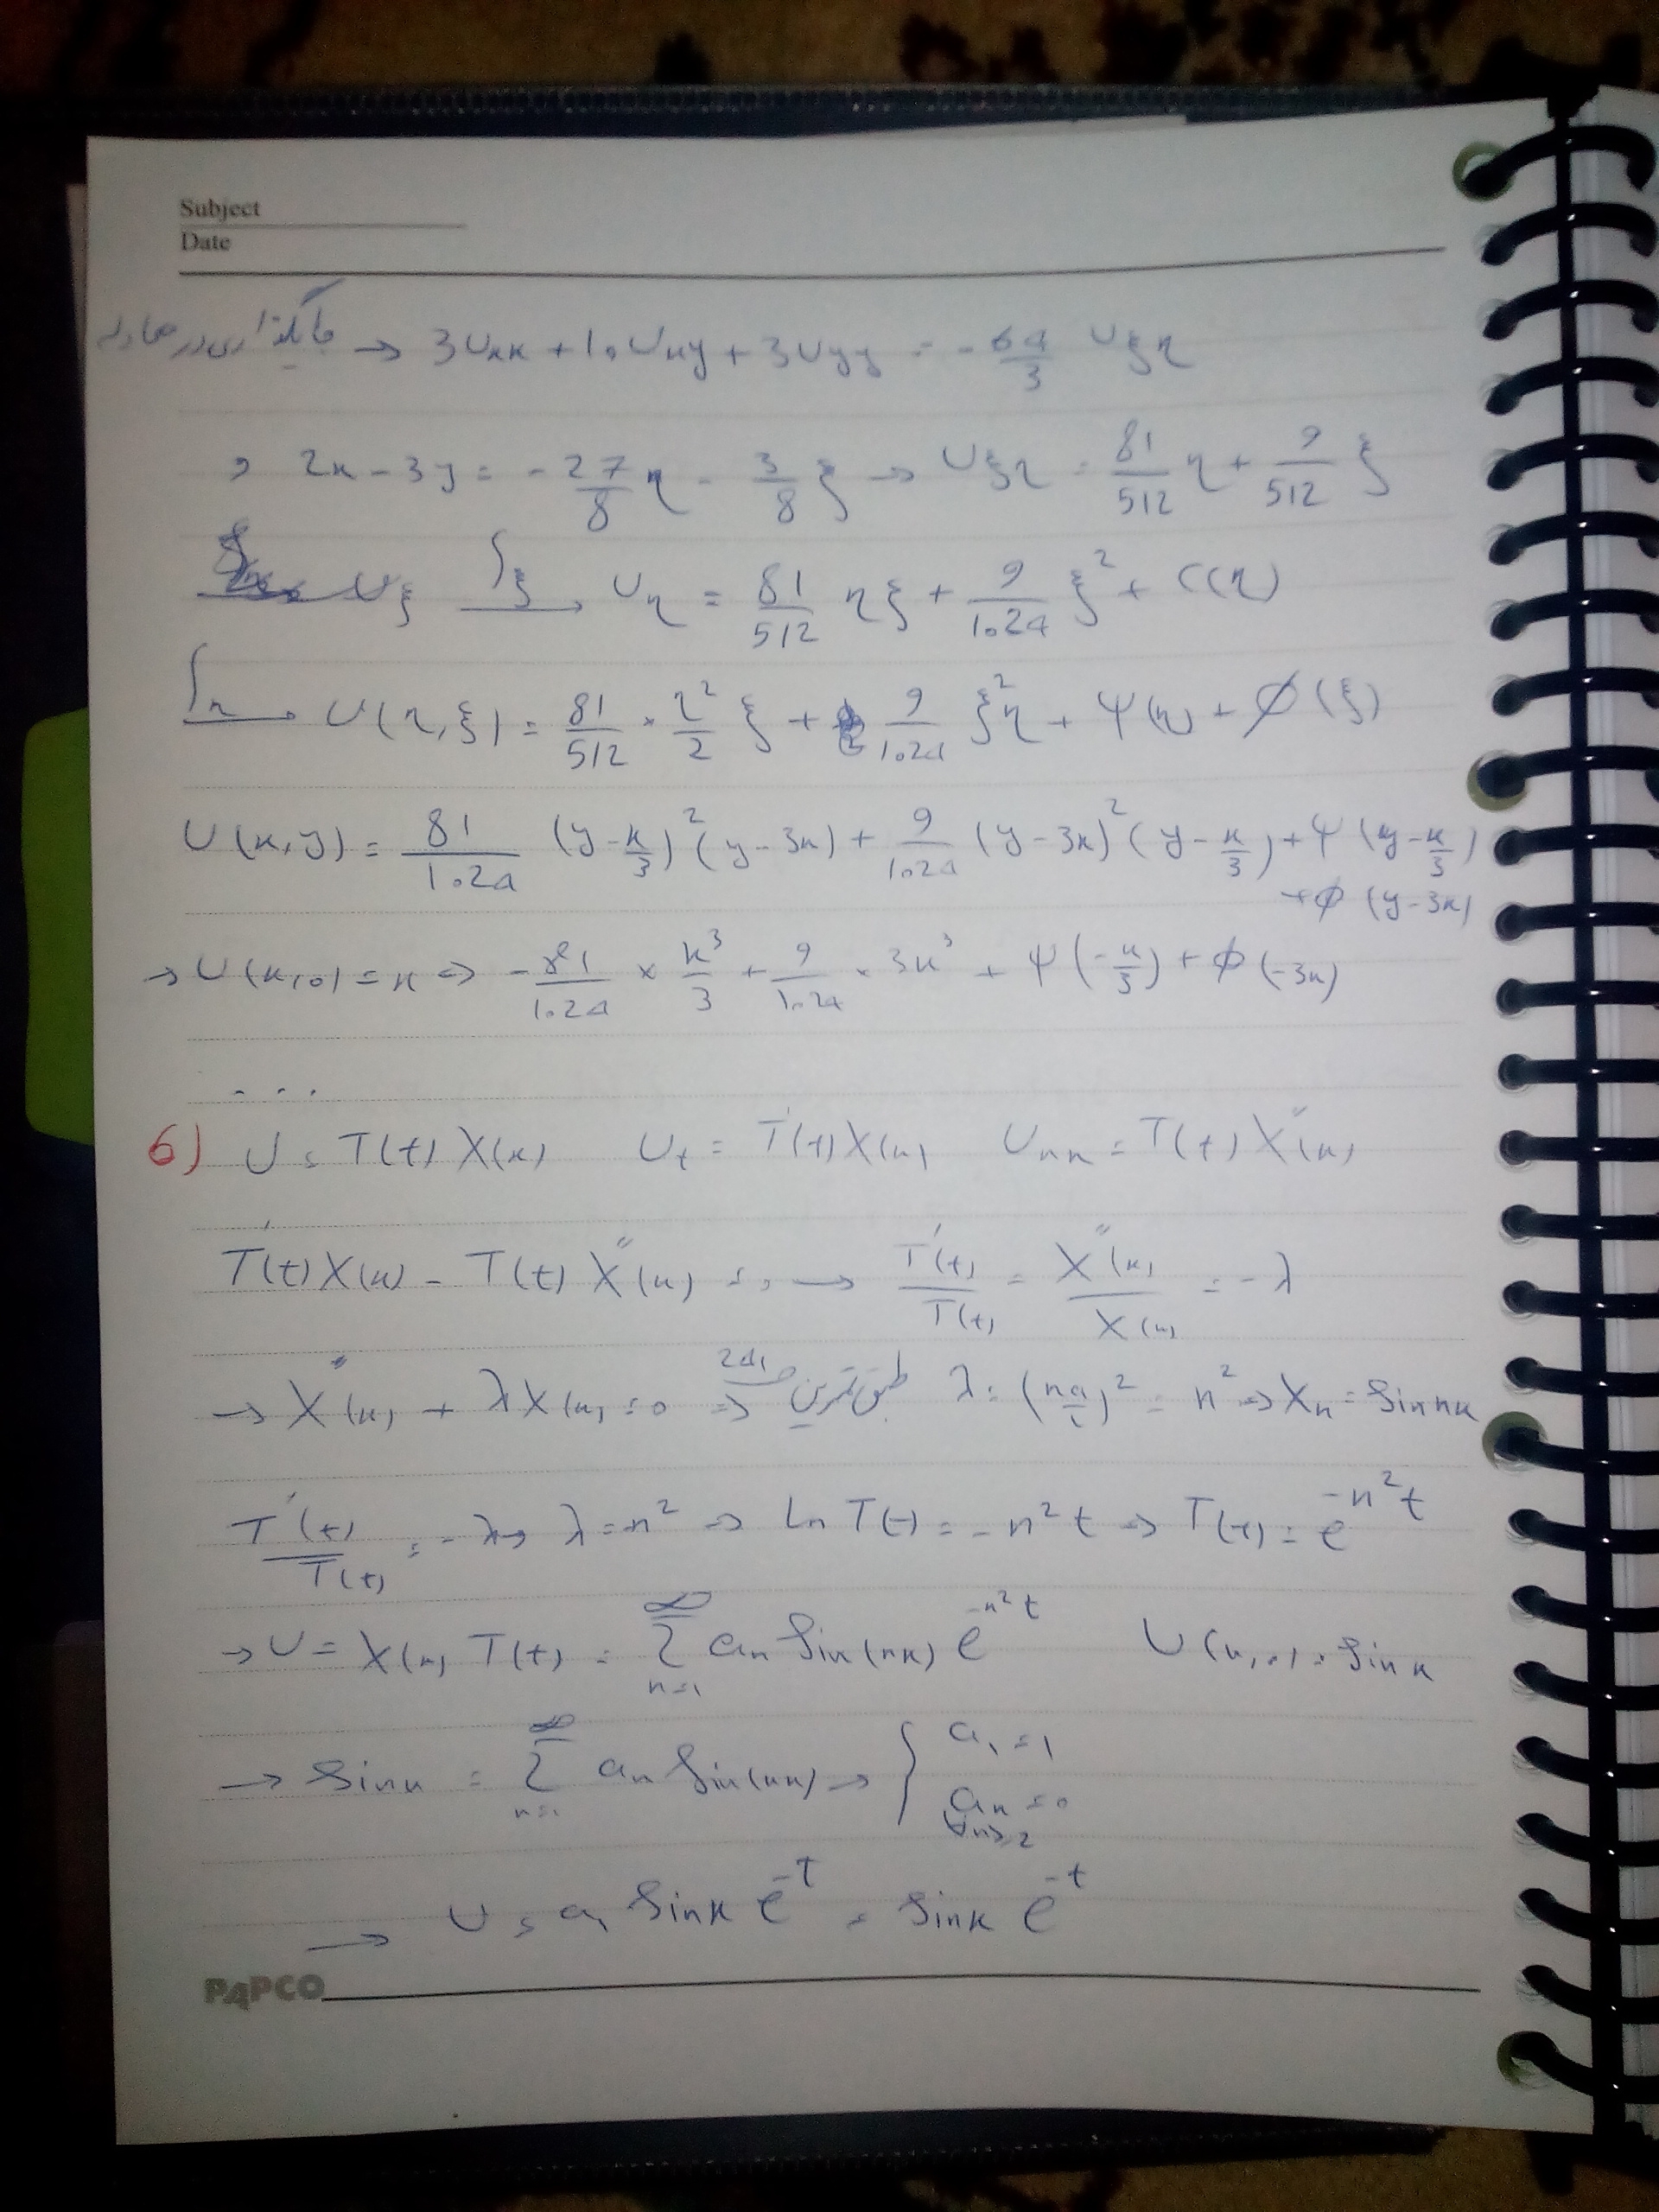 Subject
Date
جایگذاری در معادله → 3Uxx + 10Uxy + 3Uyy = -64/3 Uξη
و 2x - 3y = -27/8 η - 3/8 ξ → Uξη = 81/512 η + 9/512 ξ
Uξ ∫ξ→ Uη = 81/512 ηξ + 9/1024 ξ² + C(η)
∫η→ U(η,ξ) = 81/512 × η²/2 ξ + 9/1024 ξ²η + Ψ(η) + φ(ξ)
U(x,y) = 81/1024 (y-x/3)²(y-3x) + 9/1024 (y-3x)²(y-x/3) + Ψ(y-x/3)
+φ(y-3x)
→ U(x,0) = x ⇒ -81/1024 × x³/3 + 9/1024 × 3x³ + Ψ(-x/3) + φ(-3x)
...
6) U = T(t) X(x) Ut = T'(t)X(x) Uxx = T(t) X''(x)
T'(t)X(x) - T(t) X''(x) = 0 → T'(t)/T(t) = X''(x)/X(x) = -λ
→ X''(x) + λX(x) = 0 ⇒ طبق تمرین λ = (nπ/L)² = n² ⇒ Xn = Sin nx
T'(t)/T(t) = -λ → λ = n² ⇒ Ln T(t) = -n²t ⇒ T(t) = e^-n²t
→ U = X(x) T(t) = ∞Σn=1 an Sin(nx) e^-n²t U(x,0) = Sin x
→ Sin x = ∞Σn=1 an Sin(nx) → { a1 = 1
an = 0
∀n≥2
→ U = a1 Sin x e^-t = Sin x e^-t
PAPCO